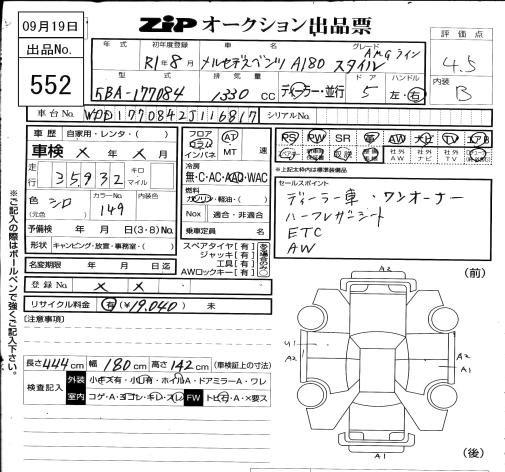 09月19日
出品No.
552
ZIP オークション出品票
評価点
4.5
内装
B
年式
初年度登録
車名
グレード
R1年8月
メルセデスベンツ A180 スタイル
AMGライン
型式
排気量
ドア
ハンドル
5BA-177084
1330 CC
ディーラー・並行
5
左・右
車台No.
WDD1770842J116817
シリアルNo.
車歴
自家用・レンタ・( )
車検 × 年 × 月
走行
35932
キロ
マイル
色
(元色)
シロ
カラーNo.
149
内装色
予備検 年 月 日(3・8)No.
形状
キャンピング・放置・事務室・( )
名変期限 年 月 日迄
登録No. × ×
リサイクル料金 有(¥19,040) 未
フロア
コラム
インパネ
AT
MT
速
冷房
無・C・AC・AAC・WAC
燃料
ガソリン・軽油・( )
Nox
適合・非適合
乗車定員 名
スペアタイヤ[有]
ジャッキ[有]
工具[有]
AWロックキー[有]
PS
PW
SR
革
AW
ナビ
TV
エアB
社外AW
社外ナビ
社外TV
※上記太枠内は標準装備品
セールスポイント
ディーラー車・ワンオーナー
ハーフレザーシート
ETC
AW
[注意事項]
長さ444cm 幅180cm 高さ142cm (車検証上の寸法)
検査記入
外装
小キズ有・小凹有・ホイルA・ドアミラーA・ワレ
室内
コゲ・A・ヨゴレ・キレ・スレ
FW
トビ石・A・×要ス
※ご記入の際はボールペンで強くご記入下さい。
(前)
A2
U1
A2
A2
A1
A1
(後)